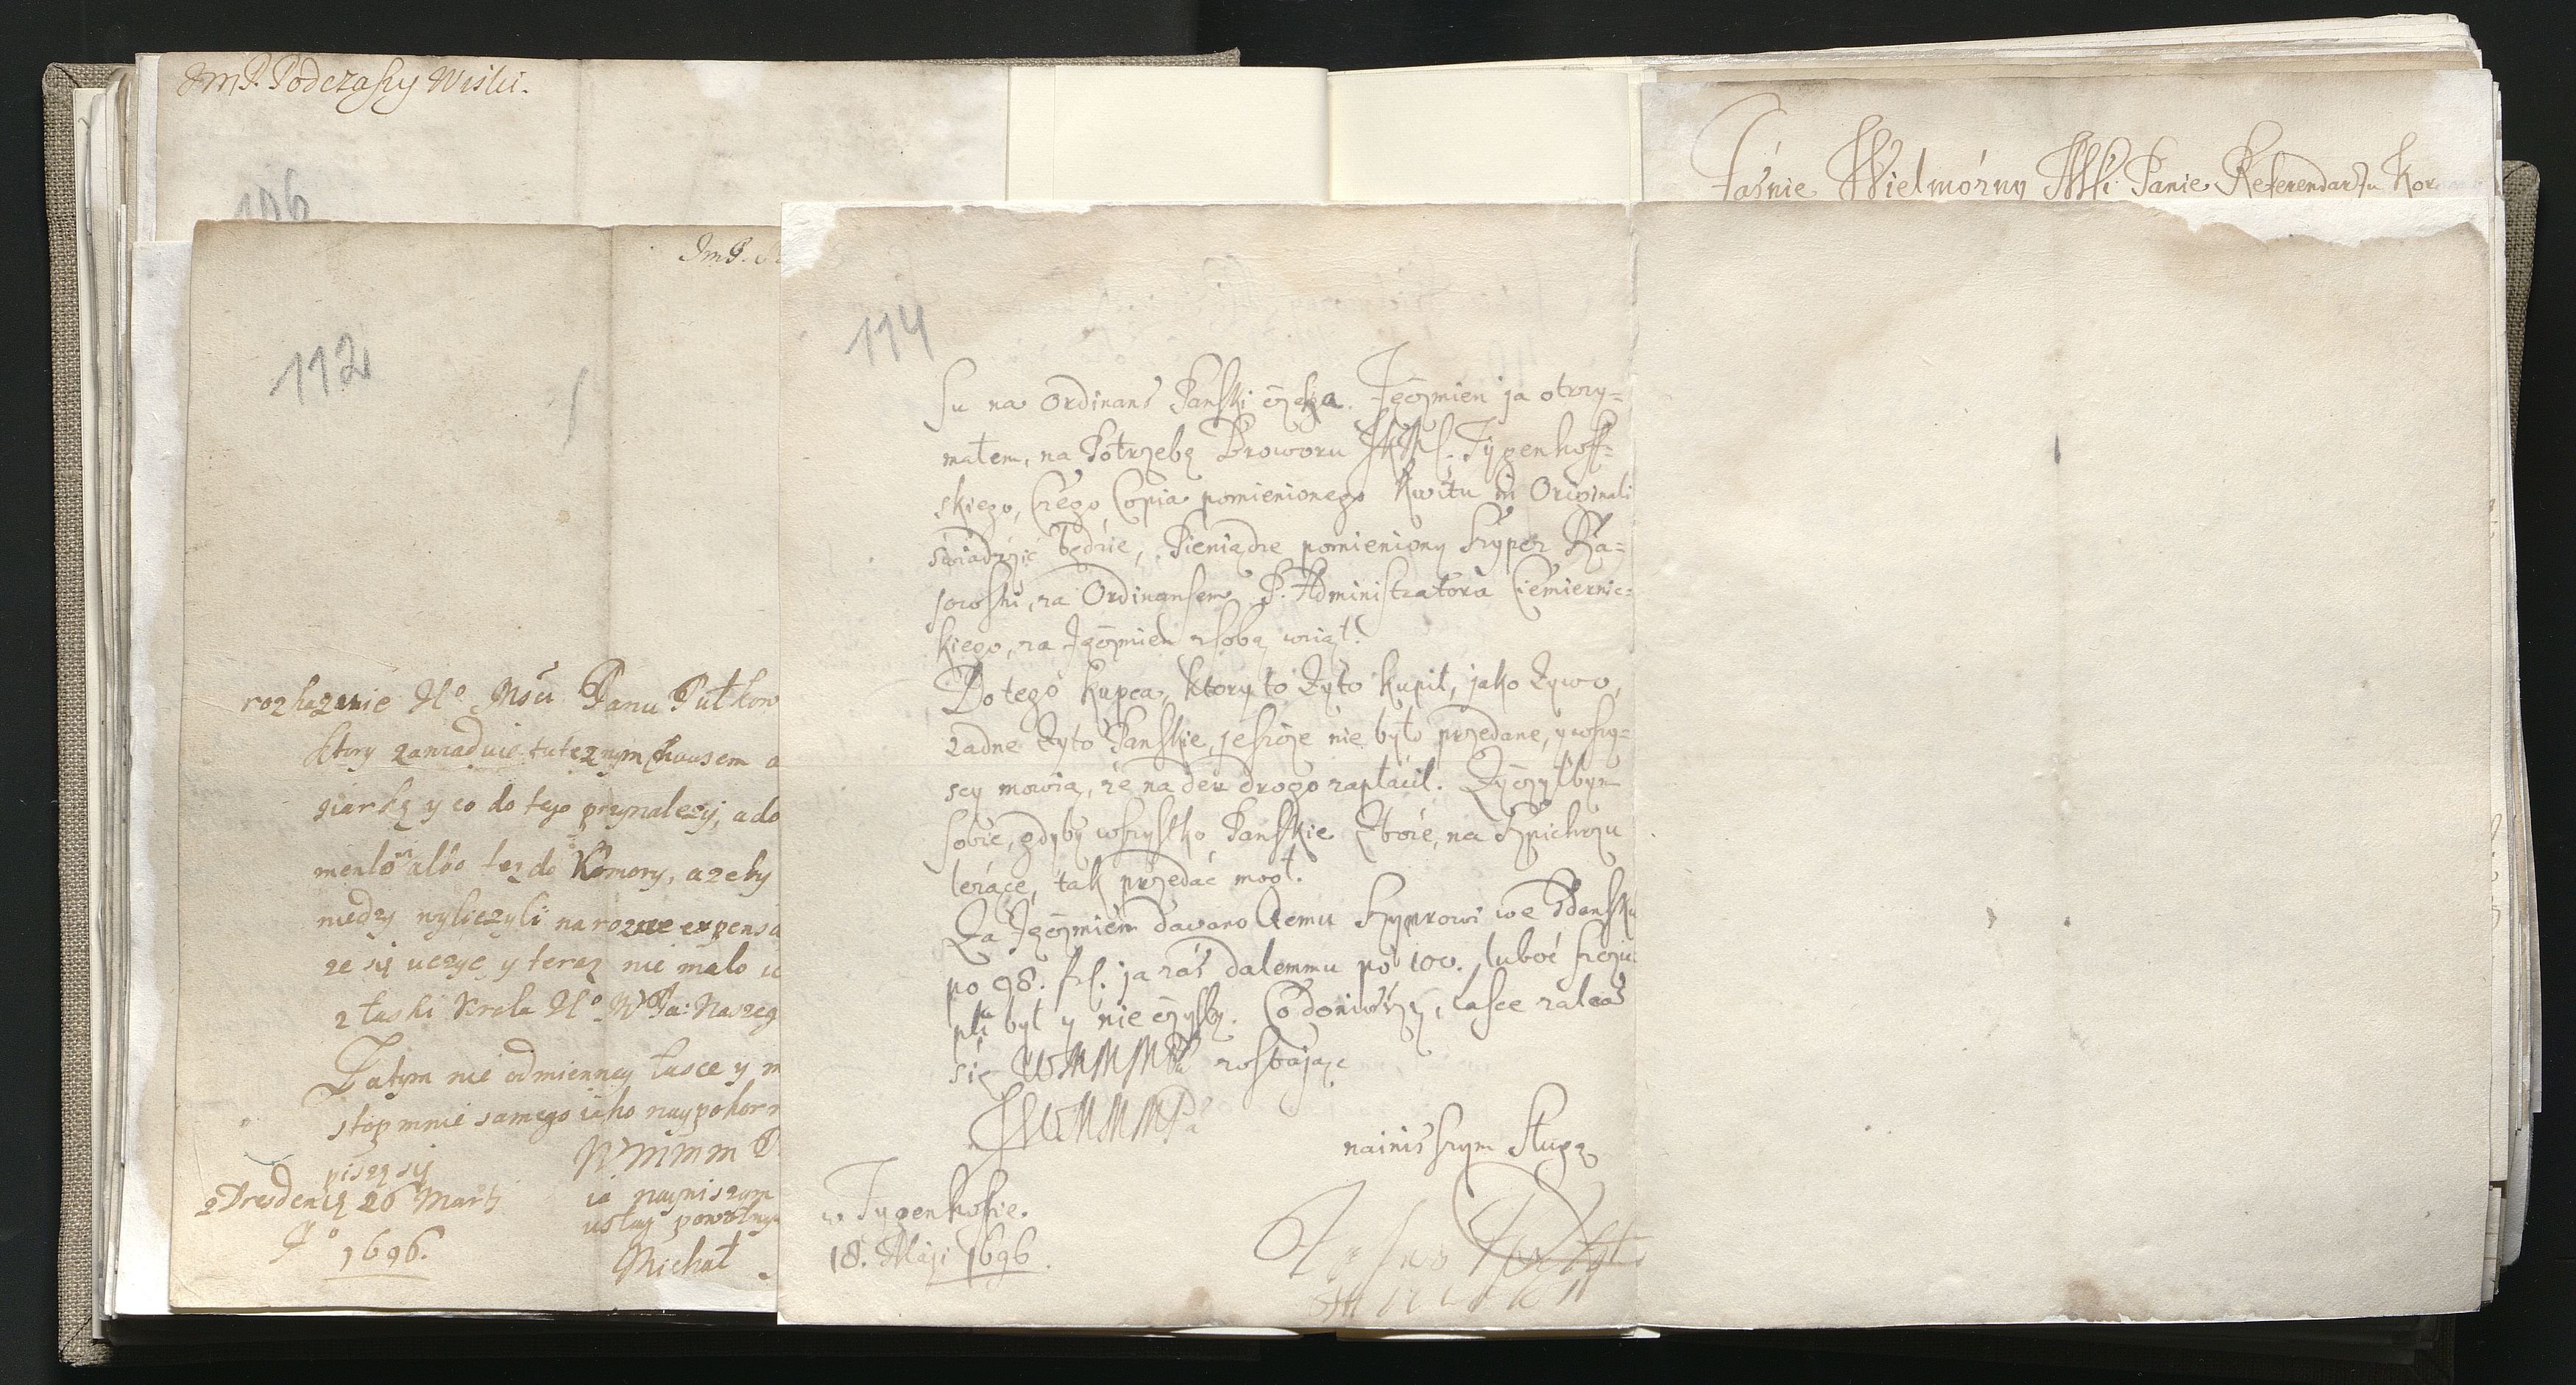 JmP. Podczaszy Wiski.
106
Jaśnie Wielmożny Mści Panie Referendarzu Kor
JmP.
112
rozkazanie Je⁰ Mści Panu Pułkow
ktory zawiaduie tuteznym
giarką y co do tego przynalezy, a do
albo tez do Komory, azeby
niedzy wyliczyli na rozne expensa
ze się uczyc y teraz nie mało
z łaski Krola Je⁰ M Pa: Naszeg
Zatym nie odmienney łasce y m
stop mnie samego iako naypokorn
piszę się
WMMM P
z Dresdenu 26 Marty
ia nayniszym
usług powolnym
A⁰ 1696.
Michał
114
Su na Ordinans Pański czeka. Jęczmien ja otrzy=
małem, na Potrzebę Broworu JKM. Tygenhoff=
skiego, Czego Copia pomienionego Kwitu in Originali
świadczić będzie, Pieniądze pomieniony Szyper
za Ordinansem P. Administratora Ciemiernic=
kiego, za Jęczmien zsobą wziął.
Do tego kupca, ktory to Zyto kupił, jako zywo,
zadne Zyto Panskie, jeszcze nie było przedane, y wszy=
scy mowią, że nader drogo zapłacił. Zyczyłbym
sobie, gdyby wszystko Panskie Zboże, na Szpichrzu
leżące, tak przedać mogł.
Za Jęczmien dawano temu Szyprowi we Gdansku
po 98. fl. ja zaś dałemmu po 100. luboć
był y nie czysty. Co doniowszy, łasce zalecas
się WMMMPa zostając
JWMMMPa
nainisszym Sługą
w Tygenhofie.
18. Maji 1696.